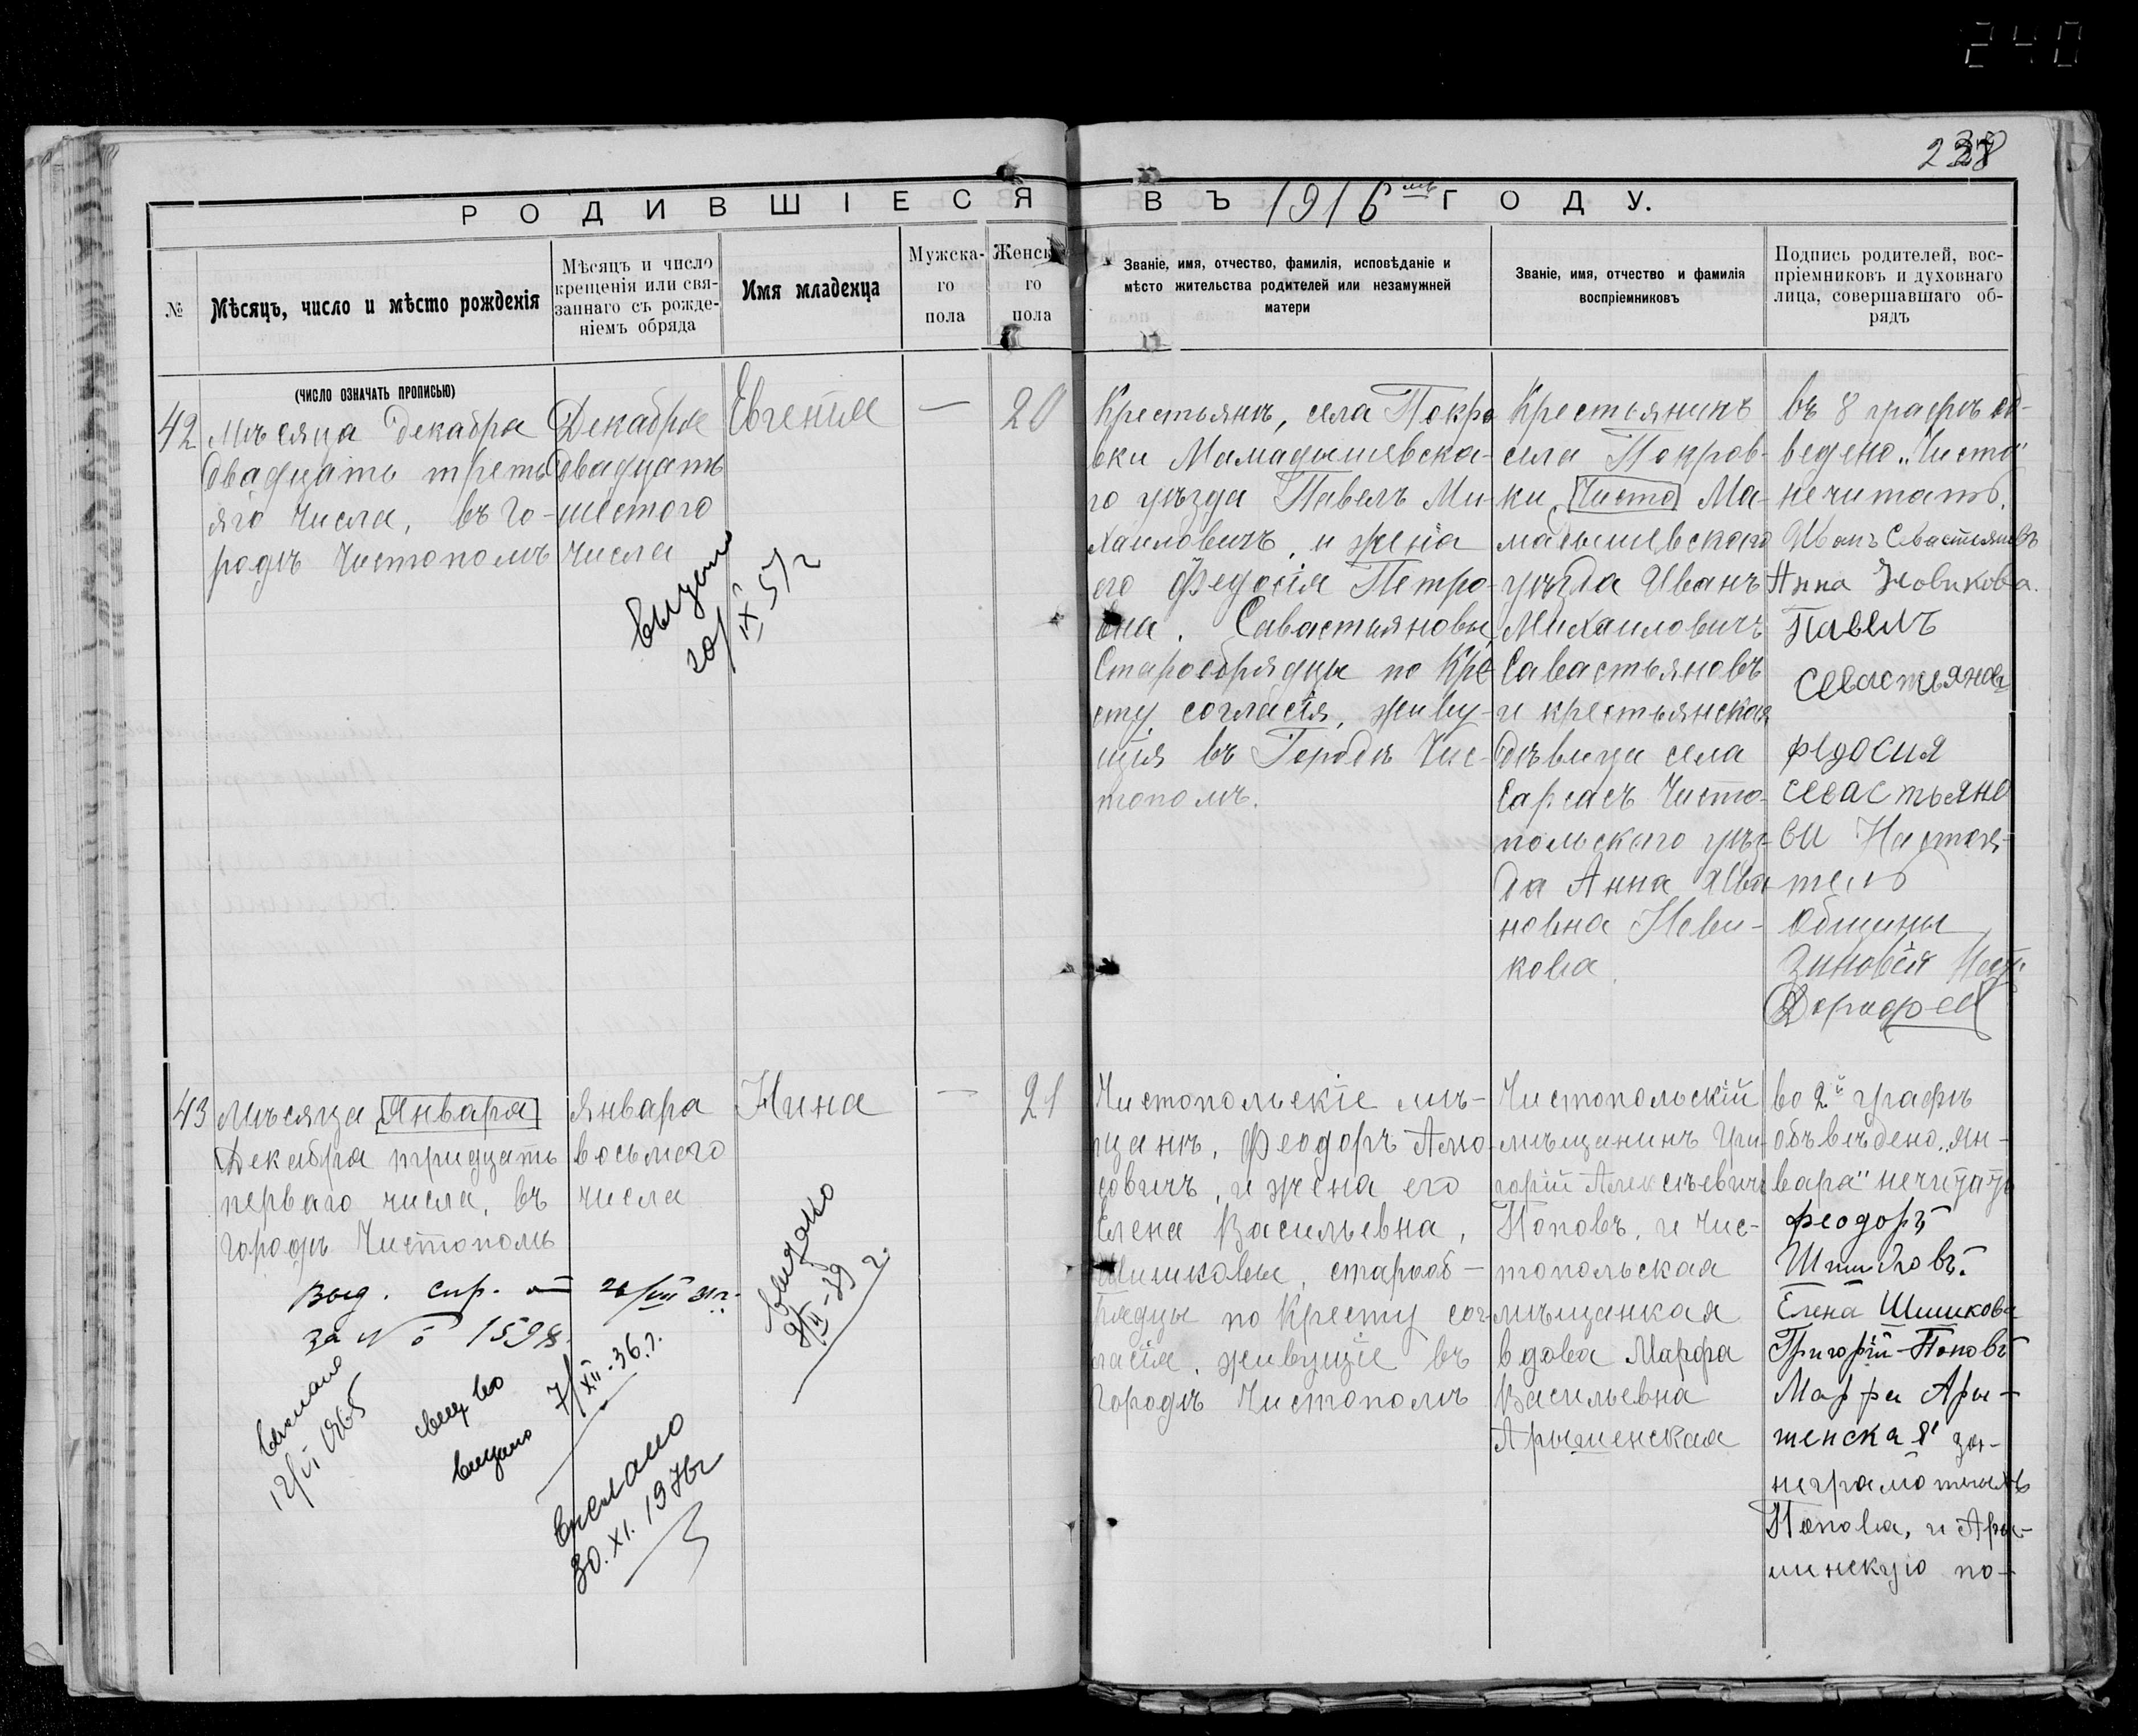 240
238
РОДИВШІЕСЯ ВЪ 1916мъ ГОДУ.
№
Мѣсяцъ, число и мѣсто рожденія
Мѣсяцъ и число
крещенія или свя-
заннаго съ рожде-
ніемъ обряда
Имя младенца
Мужска-
го
пола
Женск
го
пола
Званіе, имя, отчество, фамилія, исповѣданіе и
мѣсто жительства родителей или незамужней
матери
Званіе, имя, отчество и фамилія
воспріемниковъ
Подпись родителей, вос-
пріемниковъ и духовнаго
лица, совершавшаго об-
рядъ
(ЧИСЛО ОЗНАЧАТЬ ПРОПИСЬЮ)
42
Мѣсяца Декабря
двадцать треть
яго числа, въ го-
родѣ Чистополѣ
Декабря
двадцать
шестого
числа
Евгенія
—
20
выдано
20/IX 57г
Крестьянѣ, села Покро
вки Мамадышевска-
го уѣзда Павелъ Ми-
хаиловичъ, и жена
его Федосія Петро-
вна. Савастьяновы,
Старообрядцы по Кре
сту согласія, живу-
щія въ Городѣ Чис-
тополѣ.
Крестьянинъ
села Покров-
ки Чисто Ма-
мадышевскаго
уѣзда Иванъ
Михаиловичъ
Савастьяновъ
и крестьянская
дѣвица села
Сарсасъ Чисто-
польскаго уѣз-
да Анна Ива
новна Нови-
кова.
въ 8 графѣ об-
ведено „Чисто"
нечитать.
Иванъ Севастьяновъ
Анна Новикова.
Павелъ
Севастьянов
федосия
севастьяно
ва Настоя-
тель
общины
Зиновія
Дорофей
43
Мѣсяца Января
Декабря тридцать
перваго числа, въ
городѣ Чистополѣ
Января
восьмого
числа
Нина
—
21
Выд. спр. от 26/VIII 31г.
за № 1598.
выдано
8/II-39 г.
выслано
12/VI 1965
свид во
выдано 7/XII-36.г.
выслано
30.XI.1976г
Чистопольскіе мѣ-
щанѣ, Феодоръ Амо
совичъ, и жена его
Елена Васильевна,
Шишковы, старооб-
рядцы по Кресту сог-
ласія, живущіе въ
городѣ Чистополѣ
Чистопольскій
мѣщанинъ Гри-
горій Алексѣевичъ
Поповъ, и Чис-
топольская
мѣщанкая
вдова Марфа
Васильевна
Арышенская
во 2й графѣ
объвѣдено „Ян-
варя" нечитать
феодоръ
Шишковъ.
Елена Шишкова
Григорій Поповъ
Марфа Ары-
шенская за-
неграмотныхъ
Попова, и Ары-
шинскую по-